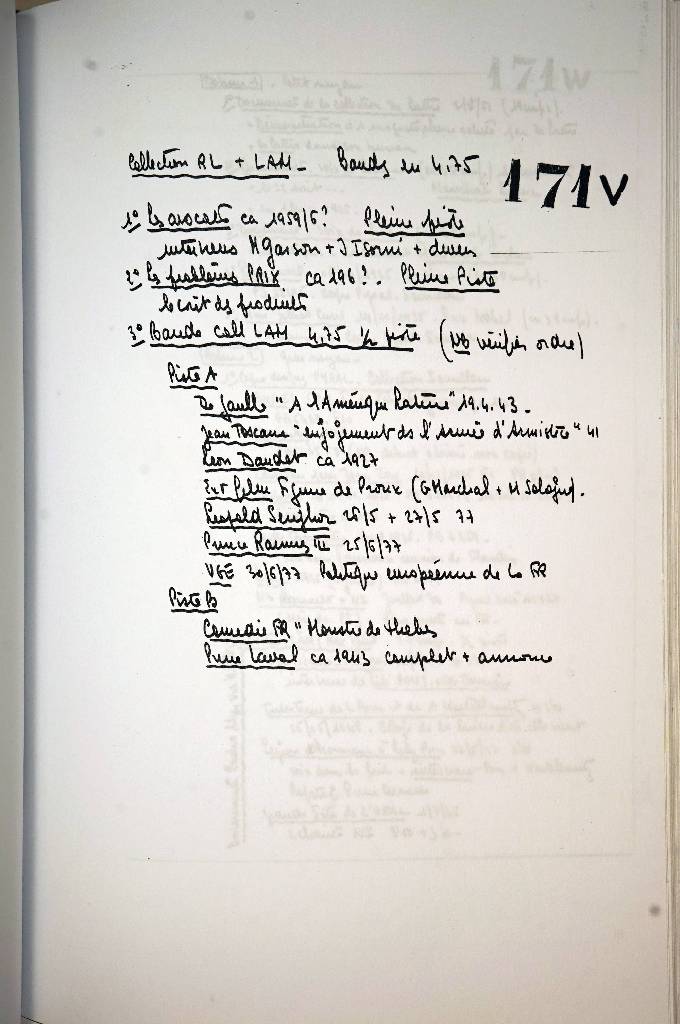 171V
Collection RL + LAM - Bandes en 4,75
1° Les avocats ca 1959/6? Pleine piste
interviews M Garson + J Isorni + divers
2° Les problèmes PRIX ca 196?. Pleine Piste
le coût des produits
3° Bande coll LAM 4,75 1/2 piste (NB vérifier ordre)
Piste A
De Gaulle "A l'Amérique Latine" 19.4.43.
Jean "engagement ds l'Armée d'Armistice" 41
Léon Daudet ca 1927
Ext film Figure de Proue (G Marchal + M Sologne).
Léopold Senghor 26/5 + 27/5 77
Prince Rainier III 25/6/77
VGE 30/6/77 Politique européenne de la FR
Piste B
Comédie FR "Monstre de Thèbes
Pierre Laval ca 1943 complet + annonce